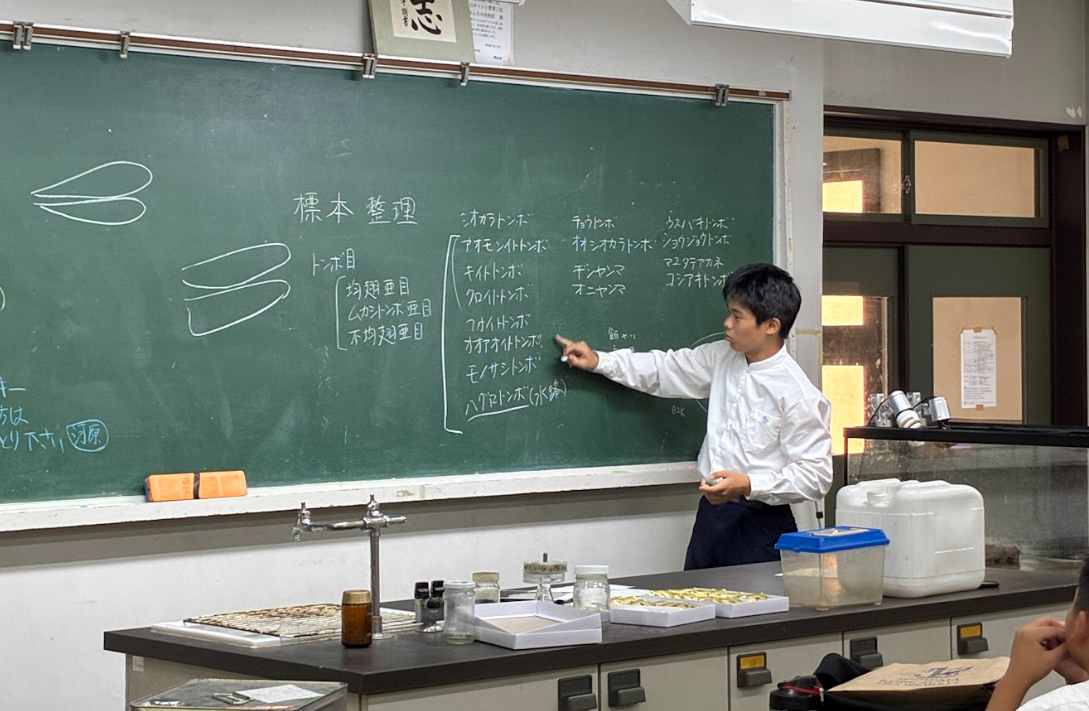 志
標本 整理
トンボ目
均翅亜目
ムカシトンボ亜目
不均翅亜目
シオカラトンボ
アオモンイトトンボ
キイトトンボ
クロイトトンボ
アオイトトンボ
オオアオイトトンボ
モノサシトンボ
ハグロトンボ
チョウトンボ
オオシオカラトンボ
ギンヤンマ
オニヤンマ
ウスバキトンボ
ショウジョウトンボ
マユタテアカネ
コシアキトンボ
キー
方は
とり下さい 河原